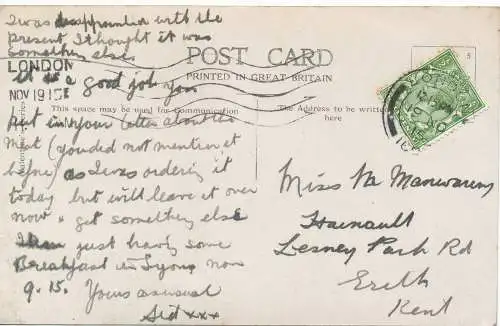 I was disappointed with the
present I thought it was
something else
it is a good job you
put in your letter about the
Mat (you did not mention it
before) as I was ordering it
today but will leave it over
now & get something else
just having some
Breakfast in Lyons now
9.15. Yours as usual
Sid xxx
LONDON
NOV 19 15
POST CARD
PRINTED IN GREAT BRITAIN
This space may be used for Communication
The Address to be written
here
5
Miss M Manwaring
Hainault
Lesney Park Rd
Erith
Kent